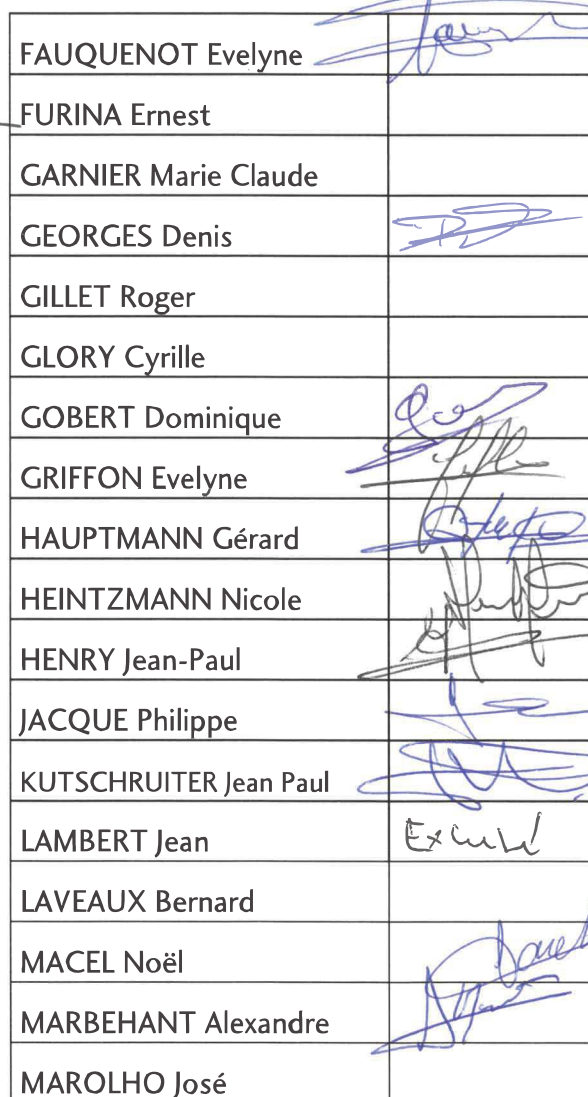 FAUQUENOT Evelyne
FURINA Ernest
GARNIER Marie Claude
GEORGES Denis
GILLET Roger
GLORY Cyrille
GOBERT Dominique
GRIFFON Evelyne
HAUPTMANN Gérard
HEINTZMANN Nicole
HENRY Jean-Paul
JACQUE Philippe
KUTSCHRUITER Jean Paul
LAMBERT Jean Excusé
LAVEAUX Bernard
MACEL Noël
MARBEHANT Alexandre
MAROLHO José